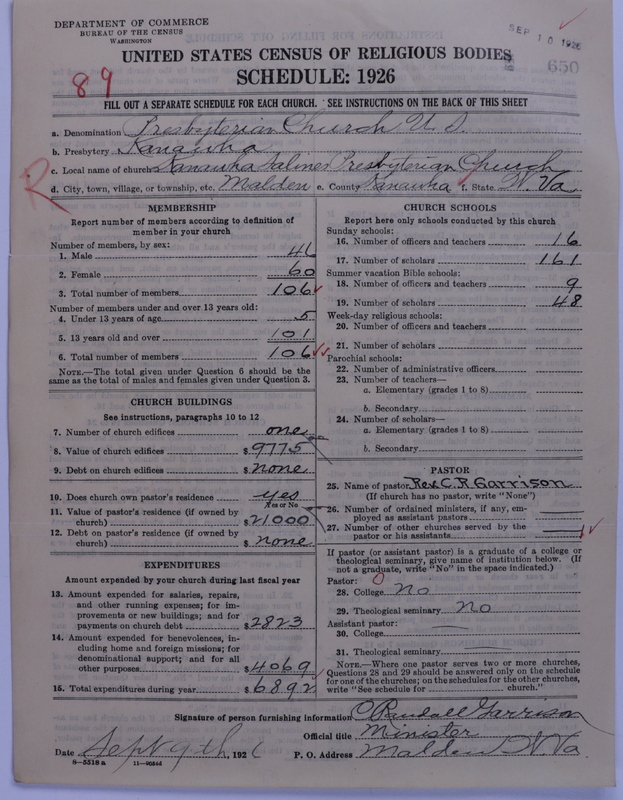 DEPARTMENT OF COMMERCE
BUREAU OF THE CENSUS
WASHINGTON
SEP 10 1926
650
UNITED STATES CENSUS OF RELIGIOUS BODIES
SCHEDULE: 1926
89
FILL OUT A SEPARATE SCHEDULE FOR EACH CHURCH. SEE INSTRUCTIONS ON THE BACK OF THIS SHEET
a. Denomination Presbyterian Church U.S.
b. Presbytery Kanawha
c. Local name of church Kanawha Salines Presbyterian Church
R
d. City, town, village, or township, etc. Malden e. County Kanawha f. State W. Va
MEMBERSHIP
Report number of members according to definition of
member in your church
Number of members, by sex:
1. Male 46
2. Female 60
3. Total number of members 106
Number of members under and over 13 years old:
4. Under 13 years of age 5
5. 13 years old and over 101
6. Total number of members 106
NOTE.—The total given under Question 6 should be the
same as the total of males and females given under Question 3.
CHURCH BUILDINGS
See instructions, paragraphs 10 to 12
7. Number of church edifices one
8. Value of church edifices $9775
9. Debt on church edifices $none
10. Does church own pastor's residence yes
Yes or No
11. Value of pastor's residence (if owned by
church) $21000
12. Debt on pastor's residence (if owned by
church) $none
EXPENDITURES
Amount expended by your church during last fiscal year
13. Amount expended for salaries, repairs,
and other running expenses; for im-
provements or new buildings; and for
payments on church debt $2823
14. Amount expended for benevolences, in-
cluding home and foreign missions; for
denominational support; and for all
other purposes $4069
15. Total expenditures during year $6892
CHURCH SCHOOLS
Report here only schools conducted by this church
Sunday schools:
16. Number of officers and teachers 16
17. Number of scholars 161
Summer vacation Bible schools:
18. Number of officers and teachers 9
19. Number of scholars 48
Week-day religious schools:
20. Number of officers and teachers
21. Number of scholars
Parochial schools:
22. Number of administrative officers
23. Number of teachers—
a. Elementary (grades 1 to 8)
b. Secondary
24. Number of scholars—
a. Elementary (grades 1 to 8)
b. Secondary
PASTOR
25. Name of pastor Rev. C. R. Garrison
(If church has no pastor, write "None")
26. Number of ordained ministers, if any, em-
ployed as assistant pastors
27. Number of other churches served by the
pastor or his assistants 1
If pastor (or assistant pastor) is a graduate of a college or
theological seminary, give name of institution below. (If
not a graduate, write "No" in the space indicated.)
Pastor: 0
28. College No
29. Theological seminary No
Assistant pastor:
30. College
31. Theological seminary
NOTE.—Where one pastor serves two or more churches,
Questions 28 and 29 should be answered only on the schedule
for one of the churches; on the schedules for the other churches,
write "See schedule for church."
Signature of person furnishing information C Randall Garrison
Official title Minister
Date Sept 9th, 1926 P. O. Address Malden W. Va
8—5518 a 11—90564